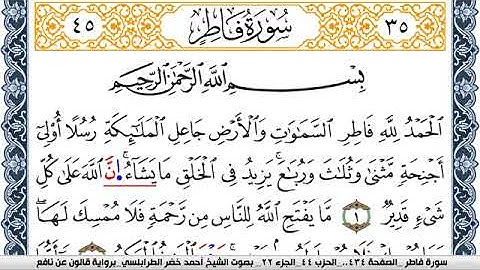 ٤٥ سُورَةُ فَاطِرٍ ٣٥
بِسْمِ اللَّهِ الرَّحْمَٰنِ الرَّحِيمِ
الْحَمْدُ لِلَّهِ فَاطِرِ السَّمَٰوَٰتِ وَالْأَرْضِ جَاعِلِ الْمَلَٰٓئِكَةِ رُسُلًا أُوْلِىٓ
أَجْنِحَةٍ مَّثْنَىٰ وَثُلَٰثَ وَرُبَٰعَ يَزِيدُ فِى الْخَلْقِ مَا يَشَآءُ اِنَّ اللَّهَ عَلَىٰ كُلِّ
شَىْءٍ قَدِيرٌ ١ مَّا يَفْتَحِ اللَّهُ لِلنَّاسِ مِن رَّحْمَةٍ فَلَا مُمْسِكَ لَهَا
سورة فاطر _ الصفحة ٤٣٤.. الحزب ٤٤ _ الجزء ٢٢ _ بصوت الشيخ أحمد خضر الطرابلسي_ برواية قالون عن نافع